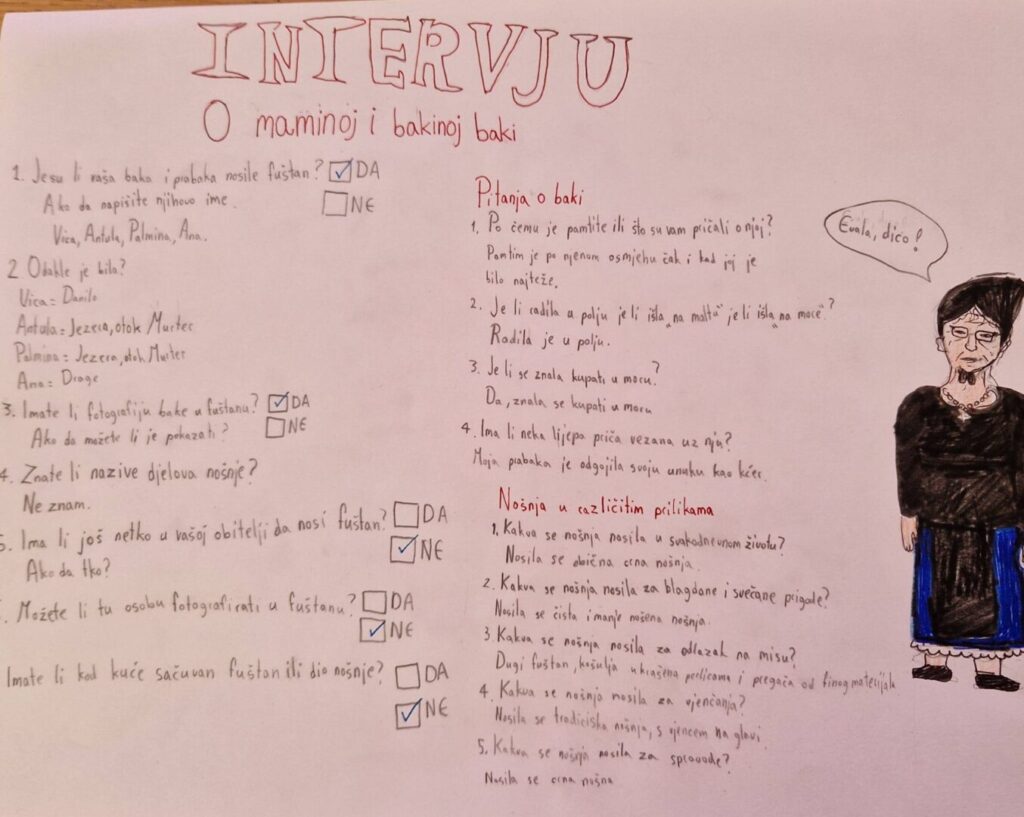 INTERVJU
O maminoj i bakinoj baki
1. Jesu li vaša baka i prabaka nosile fuštan? DA
Ako da napišite njihovo ime. NE
Vica, Antula, Palmina, Ana.
2. Odakle je bila?
Vica = Danilo
Antula = Jezera, otok Murter
Palmina = Jezera, otok Murter
Ana = Drage
3. Imate li fotografiju bake u fuštanu? DA
Ako da možete li je pokazati? NE
4. Znate li nazive djelova nošnje?
Ne znam.
5. Ima li još netko u vašoj obitelji da nosi fuštan? DA
NE
Ako da tko?
Možete li tu osobu fotografirati u fuštanu? DA
NE
Imate li kod kuće sačuvan fuštan ili dio nošnje? DA
NE
Pitanja o baki
1. Po čemu je pamtite ili što su vam pričali o njoj?
Pamtim je po njenom osmjehu čak i kad joj je
bilo najteže.
2. Je li radila u polju je li išla „na maltu" je li išla „na more"?
Radila je u polju.
3. Je li se znala kupati u moru?
Da, znala se kupati u moru
4. Ima li neka lijepa priča vezana uz nju?
Moja prabaka je odgojila svoju unuku kao kćer.
Nošnja u različitim prilikama
1. Kakva se nošnja nosila u svakodnevnom životu?
Nosila se obična crna nošnja.
2. Kakva se nošnja nosila za blagdane i svečane prigode?
Nosila se čista i manje nošena nošnja.
3. Kakva se nošnja nosila za odlazak na misu?
Dugi fuštan, košulja ukrašena perlicama i pregača od finog materijala
4. Kakva se nošnja nosila za vjenčanja?
Nosila se tradiciska nošnja, s vjencem na glavi.
5. Kakva se nošnja nosila za sprovode?
Nosila se crna nošna
Evala, dico!